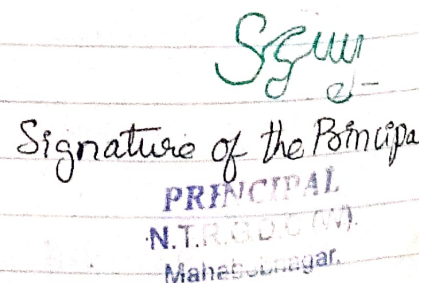 Signature of the Principa
PRINCIPAL
N.T.R.G.D.C (W).
Mahabubnagar.